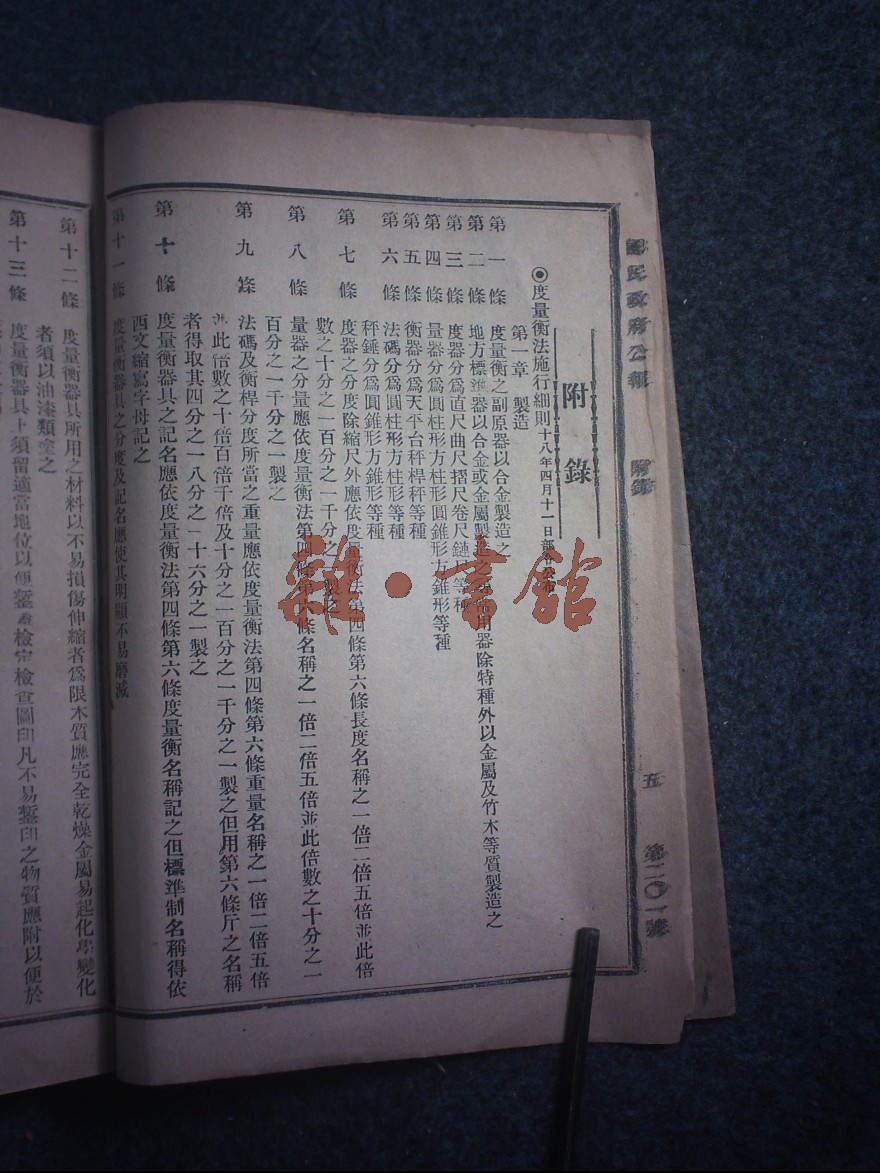 國民政府公報
附錄
五
第二〇一號
附錄
◉度量衡法施行細則十八年四月十一日部令公布
第一章 製造
第一條 度量衡之副原器以合金製造之
第二條 地方標準器以合金或金屬製造之 用器除特種外以金屬及竹木等質製造之
第三條 度器分爲直尺曲尺摺尺卷尺鏈尺等種
第四條 量器分爲圓柱形方柱形圓錐形方錐形等種
第五條 衡器分爲天平台秤桿秤等種
第六條 法碼分爲圓柱形方柱形等種
秤錘分爲圓錐形方錐形等種
第七條 度器之分度除縮尺外應依度量衡法第四條第六條長度名稱之一倍二倍五倍並此倍
數之十分之一百分之一千分之一製之
第八條 量器之分量應依度量衡法第四條第六條名稱之一倍二倍五倍並此倍數之十分之一
百分之一千分之一製之
第九條 法碼及衡桿分度所當之重量應依度量衡法第四條第六條重量名稱之一倍二倍五倍
並此倍數之十倍百倍千倍及十分之一百分之一千分之一製之但用第六條斤之名稱
者得取其四分之一八分之一十六分之一製之
第十條 度量衡器具之記名應依度量衡法第四條第六條度量衡名稱記之但標準制名稱得依
西文縮寫字母記之
第十一條 度量衡器具之分度及記名應使其明顯不易磨滅
第十二條 度量衡器具所用之材料以不易損傷伸縮者爲限木質應完全乾燥金屬易起化學變化
者須以油漆類塗之
第十三條 度量衡器具上須留適當地位以便鏨蓋檢定檢查圖印凡不易鏨印之物質應附以便於
雜·書館